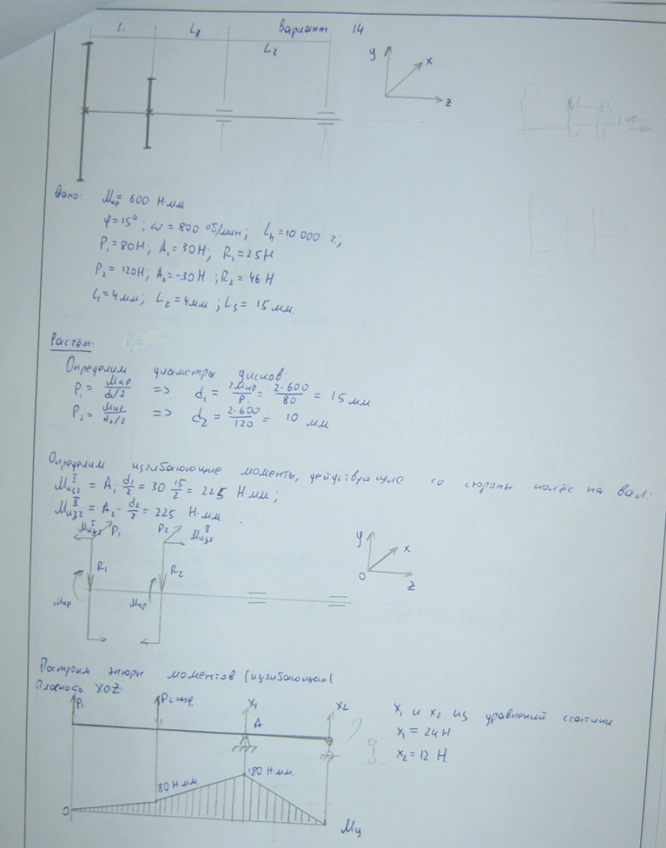 L₁ L₂ Вариант 14
L₃
y x z
Дано: Mкр = 600 Н·мм
φ=15°; ω = 800 об/мин; Lh = 10 000 г;
P₁ = 80Н; A₁ = 30Н; R₁ = 25Н
P₂ = 120Н; A₂ = -30Н; R₂ = 46Н
L₁ = 4мм; L₂ = 4мм; L₃ = 15 мм.
Расчёт:
Определим диаметры дисков:
P₁ = Mкр/(d₁/2) => d₁ = 2Mкр/P₁ = 2·600/80 = 15 мм
P₂ = Mкр/(d₂/2) => d₂ = 2·600/120 = 10 мм
Определим изгибающие моменты, действующие со стороны колёс на вал:
Mизг I = A₁·d₁/2 = 30·15/2 = 225 Н·мм;
Mизг II = A₂·d₂/2 = 225 Н·мм.
Mизг I P₁ P₂ Mизг II
y x
R₁ R₂ O z
Mкр Mкр
Построим эпюры моментов (изгибающих)
Плоскость XOZ:
P₁ X₁ X₂
A ?
X₁ и X₂ из уравнений статики
X₁ = 24 Н
X₂ = 12 Н
80 Н·мм 180 Н·мм.
O Mц